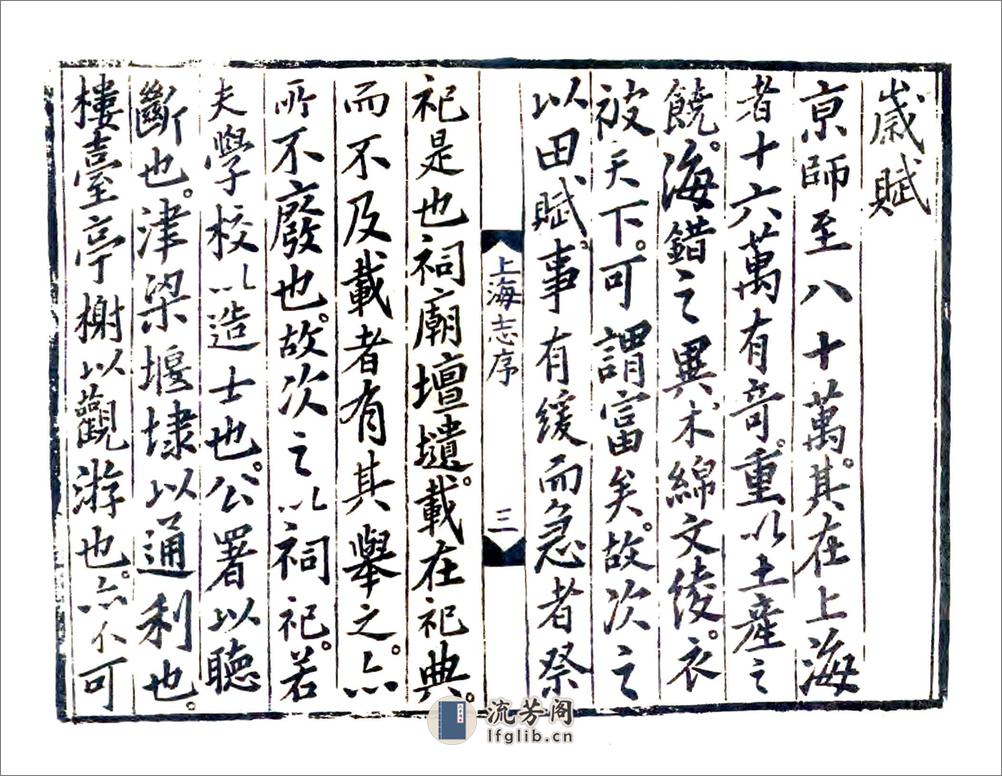 歲賦
京師至八十萬。其在上海
者十六萬有奇。重以土產之
饒。海錯之異木綿文綾。衣
被天下。可謂富矣。故次之
以田賦。事有緩而急者祭
上海志序
三
祀是也祠廟壇壝。載在祀典。
而不及載者有其舉之。亦
所不廢也。故次之以祠祀。若
夫學校以造士也。公署以聽
斷也。津梁堰埭以通利也。
樓臺亭榭以觀游也。亦不可
流芳阁
lfglib.cn